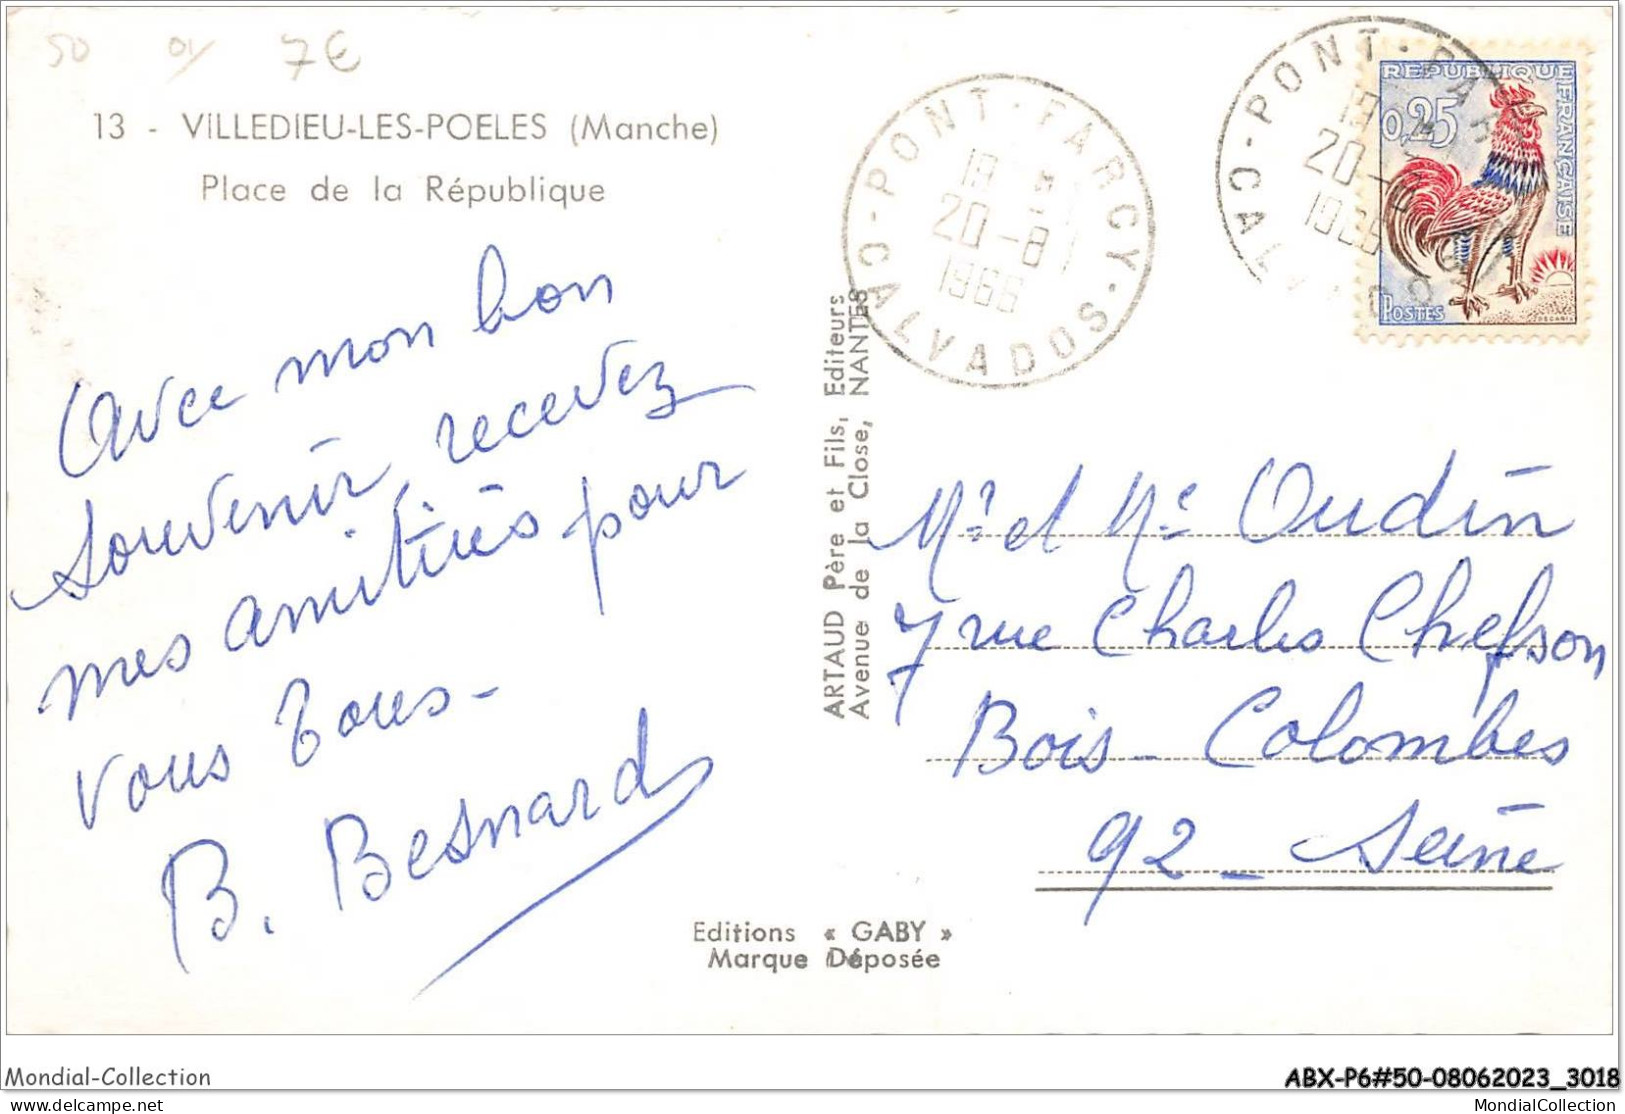 50 01 7€
13 - VILLEDIEU-LES-POELES (Manche)
Place de la République
Avec mon bon
souvenir, recevez
mes amitiés pour
vous tous-
B. Besnard
ARTAUD Père et Fils, Editeurs
Avenue de la Close, NANTES
Editions « GABY »
Marque Déposée
PONT-FARCY
20-8
1966
CALVADOS
PONT-FARCY
20-8
1966
CALVADOS
REPUBLIQUE FRANÇAISE
0,25
POSTES
DECARIS
Mr et Me Oudin
7 rue Charles Chefson
Bois-Colombes
92 - Seine
Mondial-Collection
ABX-P6#50-08062023_3018
www.delcampe.net
MondialCollection